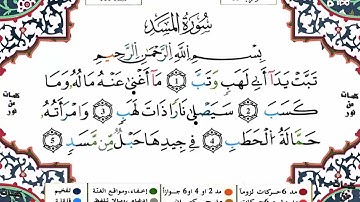 سُورَةُ المَسَدِ
بِسْمِ اللَّهِ الرَّحْمَنِ الرَّحِيمِ
تَبَّتْ يَدَا أَبِي لَهَبٍ وَتَبَّ ١ مَا أَغْنَى عَنْهُ مَالُهُ وَمَا
كَسَبَ ٢ سَيَصْلَى نَارًا ذَاتَ لَهَبٍ ٣ وَامْرَأَتُهُ
حَمَّالَةَ الْحَطَبِ ٤ فِي جِيدِهَا حَبْلٌ مِّن مَّسَدٍ ٥
كلمات
من
نور
كلمات
من
نور
مد ٦ حركات لزوما مد ٢ او ٤ او ٦ جوازاً إخفاء، ومواقع الغنة تفخيم
قلقلة